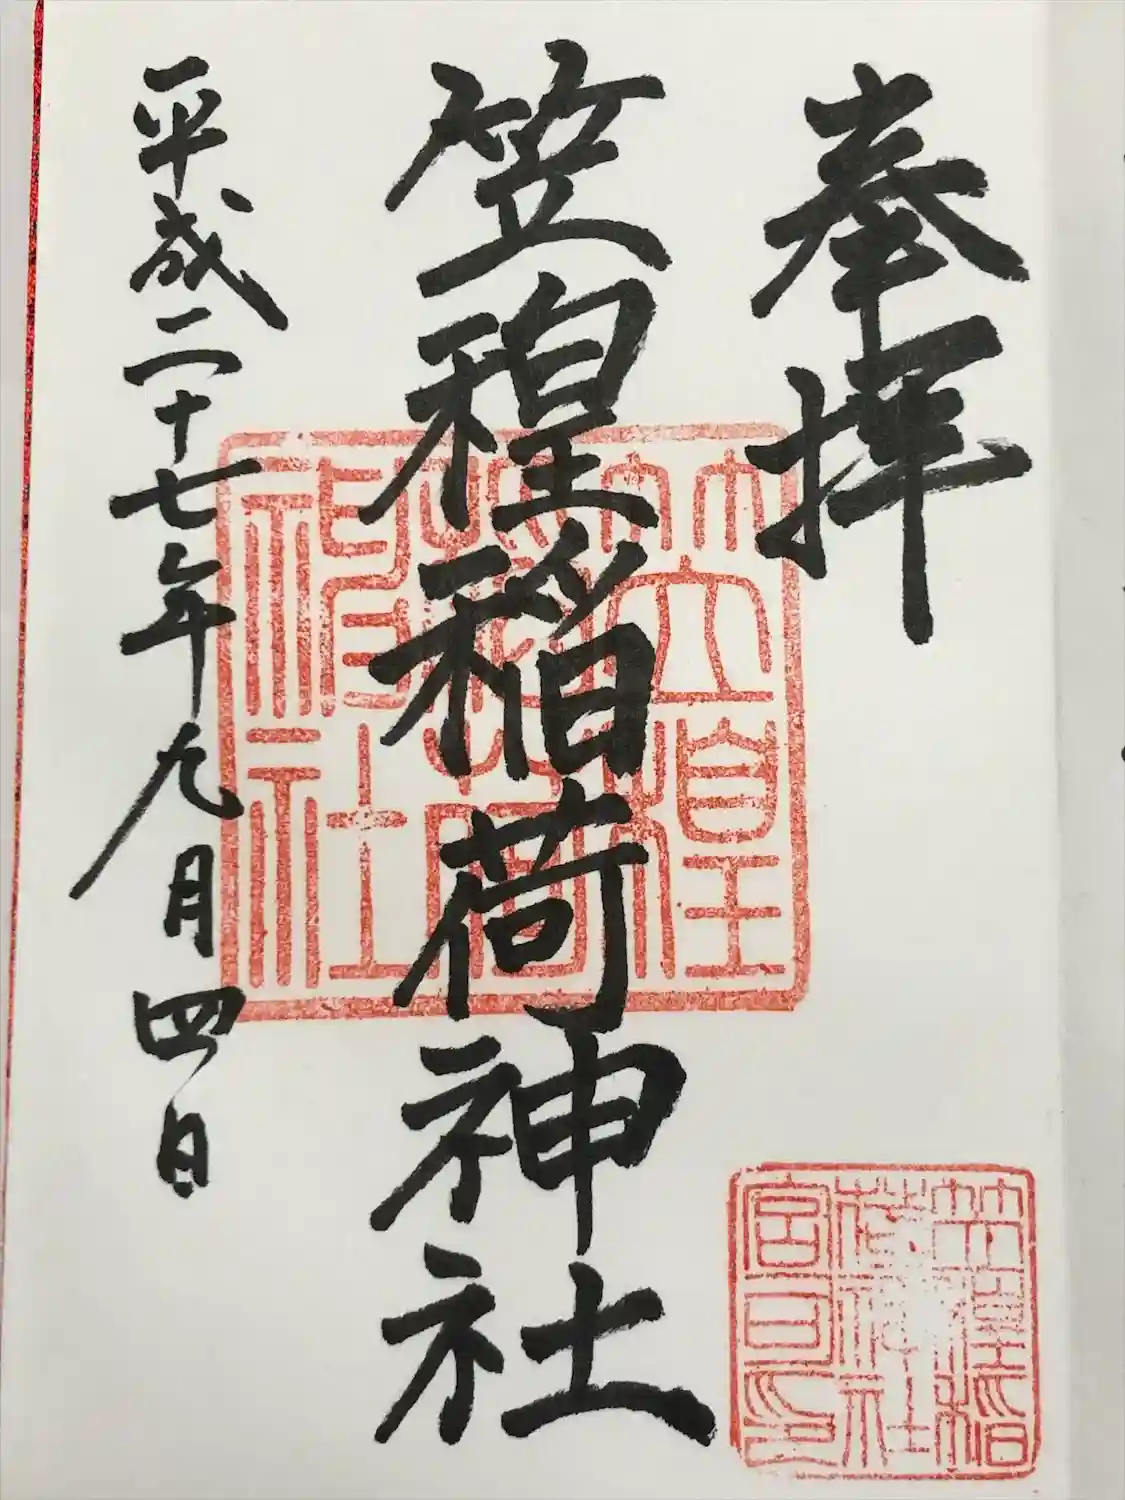 奉拝
笠䅣稲荷神社
平成二十七年九月四日
笠䅣稲荷神社
笠䅣稲荷神社宮司印